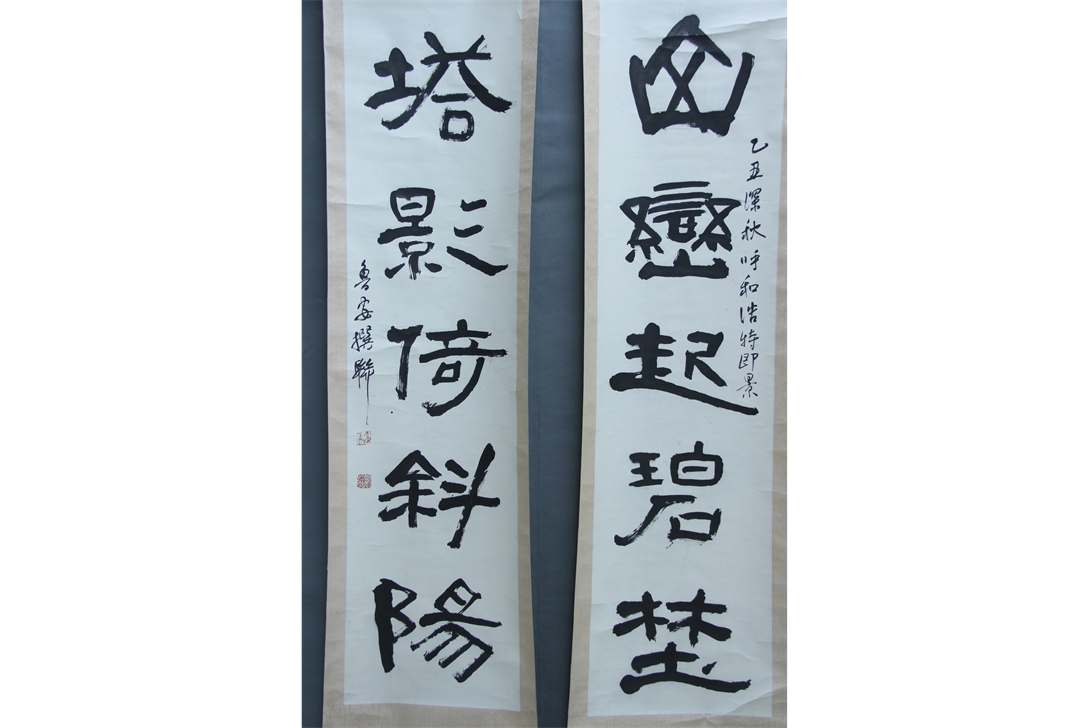 巒起碧埜
乙丑深秋呼和浩特即景
塔影倚斜陽
魯安撰聯